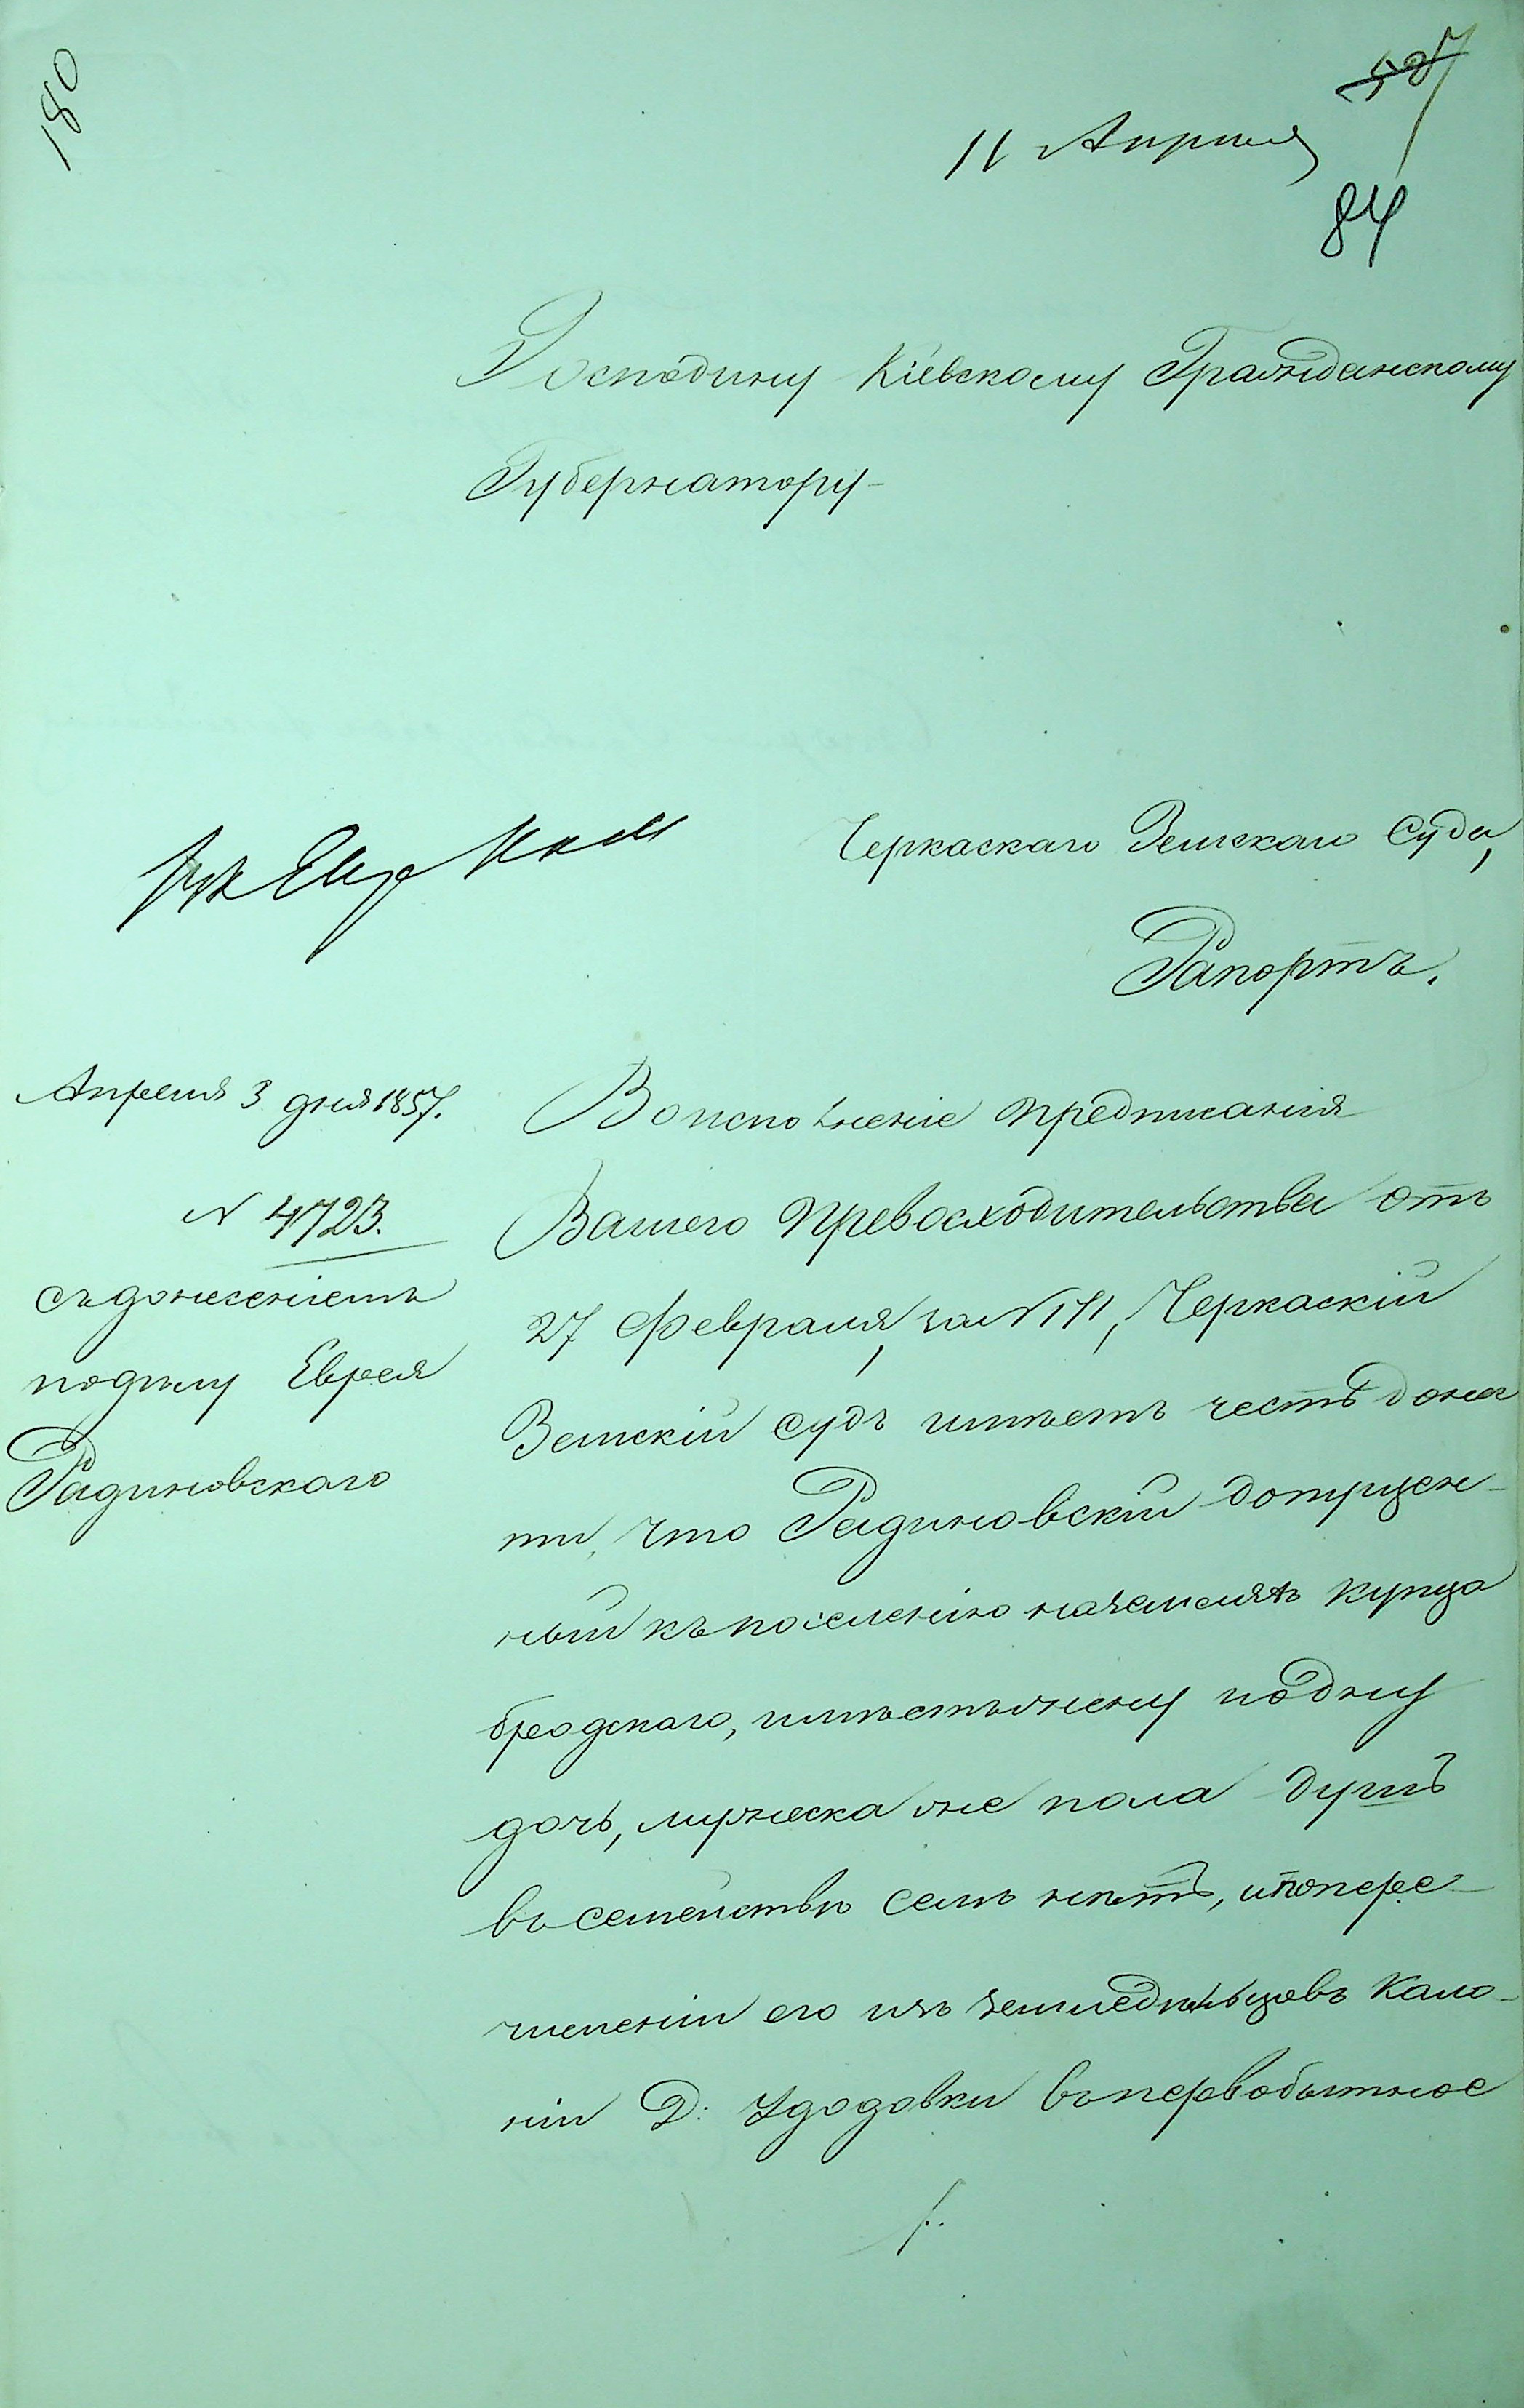 180
527
11 Апреля
84
Господину Кіевскому Гражданскому
Губернатору
Черкаскаго Земскаго Суда,
Рапортъ.
Апреля 3 дня 1857.
N 4723.
съ донесеніемъ
по делу Еврея
Радиновскаго
Во исполненіе предписанія
Вашего Превосходительства отъ
27 Февраля, за N 171, Черкаскій
Земскій Судъ имѣетъ честь доне
сти, что Радиновскій допущен-
ный къ поселенію на земляхъ купца
бродскаго, имѣетъ жену и одну
дочь, мужеска же пола душъ
въ семействѣ семъ нѣтъ, и по пере-
численіи его изъ земледѣльцовъ Коло-
ніи Д: Удодовки въ первобытное